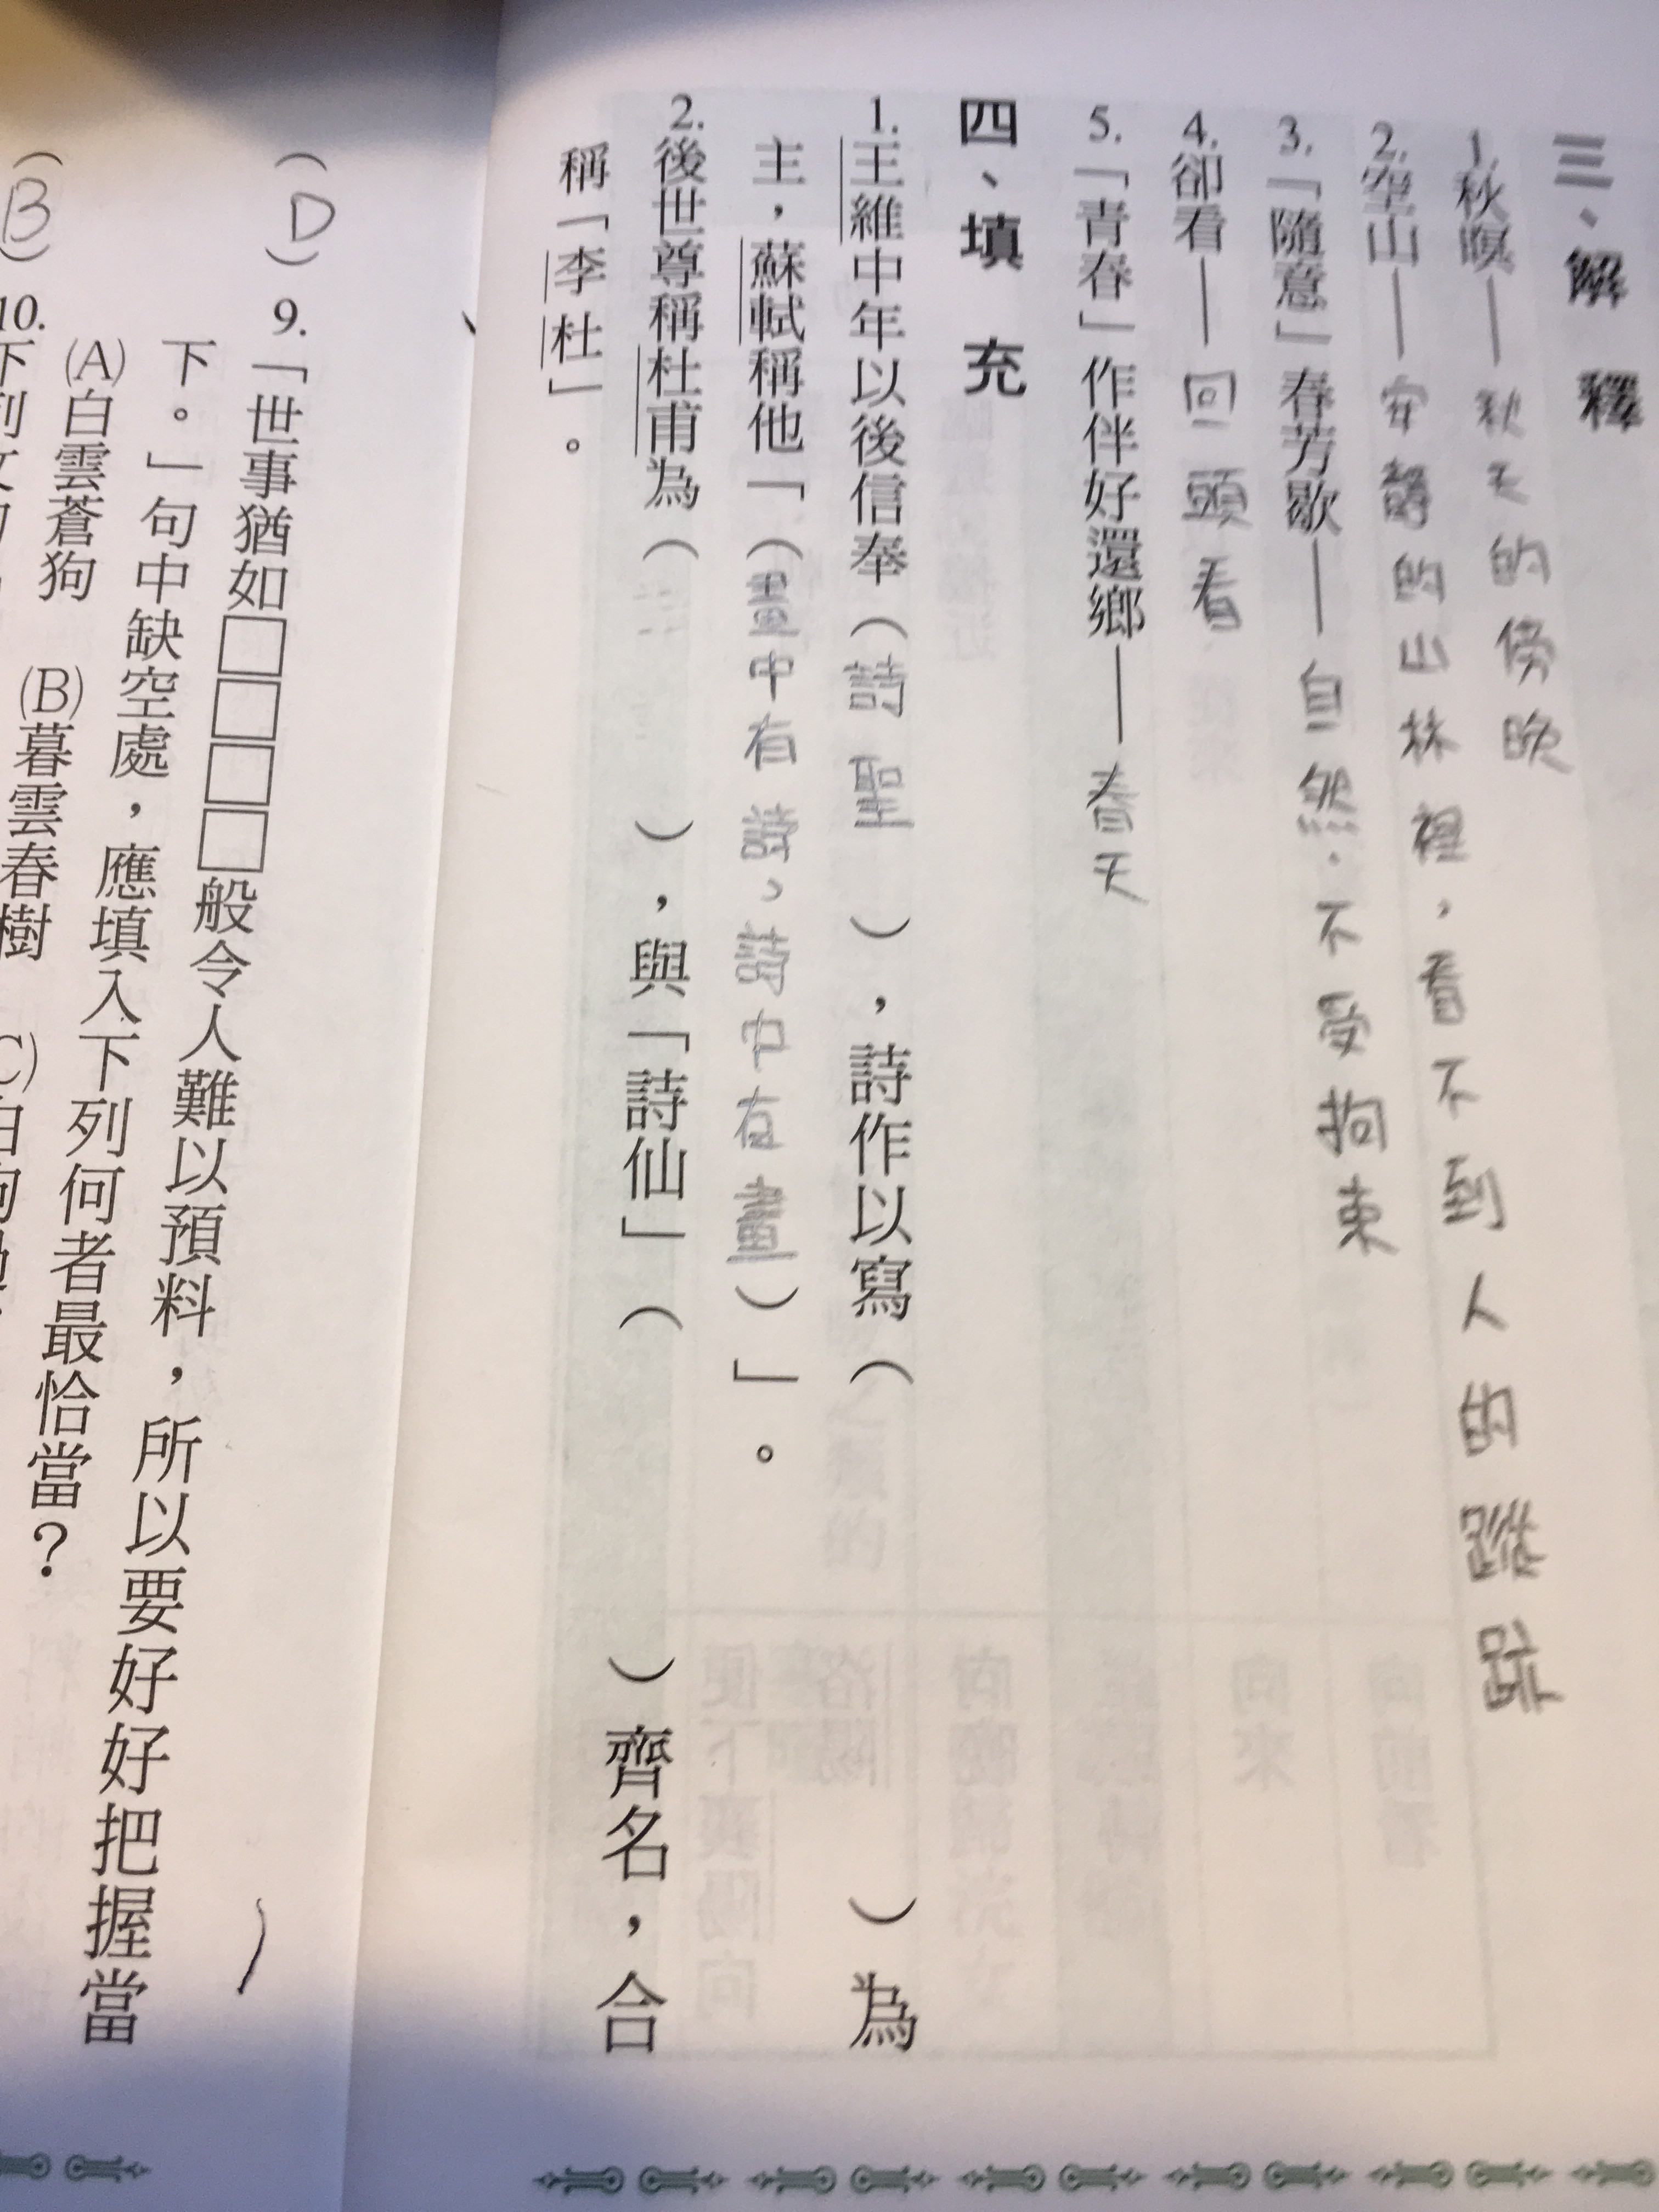 三、解釋
1.秋暝——秋天的傍晚
2.空山——安靜的山林裡，看不到人的蹤跡
3.「隨意」春芳歇——自然．不受拘束
4.卻看——回頭看
5.「青春」作伴好還鄉——春天
四、填充
1.王維中年以後信奉（詩聖），詩作以寫（　）為
主，蘇軾稱他「（畫中有詩、詩中有畫）」。
2.後世尊稱杜甫為（　），與「詩仙」（　）齊名，合
稱「李杜」。
（D）9.「世事猶如□□□□般令人難以預料，所以要好好把握當
下。」句中缺空處，應填入下列何者最恰當？
(A)白雲蒼狗 (B)暮雲春樹
（B）10.下列